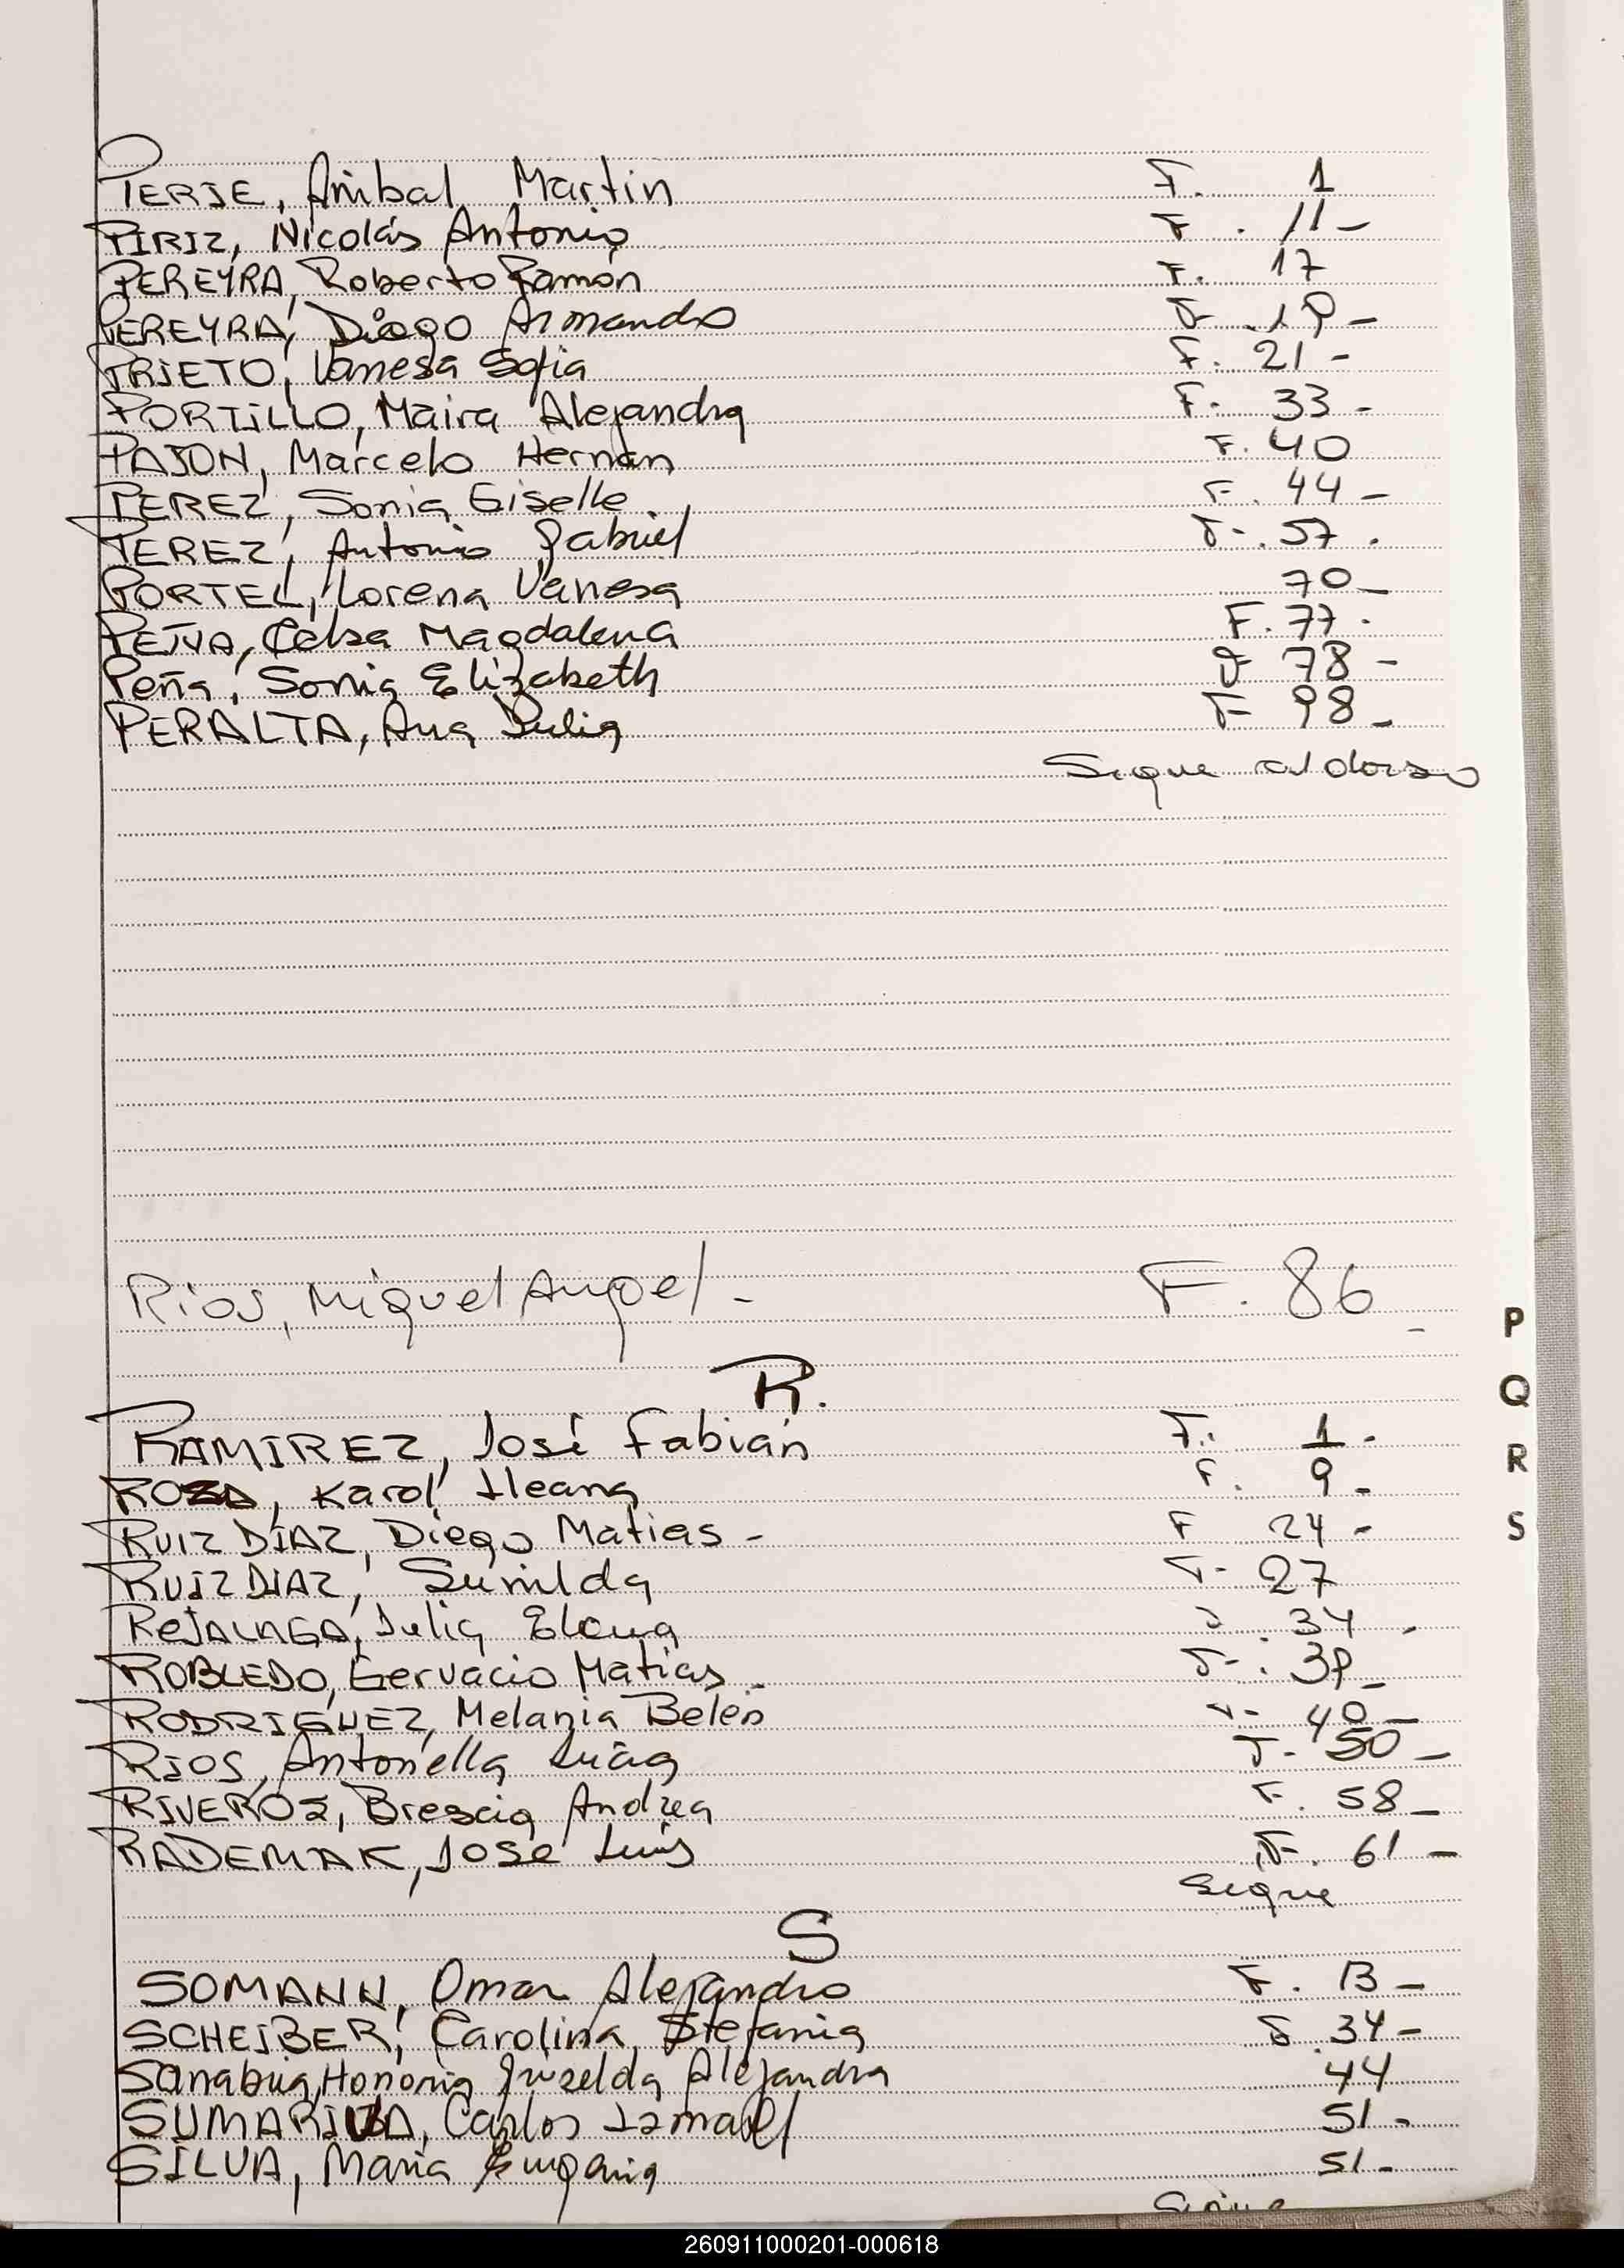 PERIE, Anibal Martin F. 1
PIRIZ, Nicolás Antonio F. 11-
PEREYRA, Roberto Ramón F. 17
PEREYRA, Diego Armando F. 19-
PRIETO, Vanesa Sofia F. 21-
PORTILLO, Maira Alejandra F. 33-
PAJON, Marcelo Hernan F. 40
PEREZ, Sonia Giselle F. 44-
PEREZ, Antonio Gabriel F. 57.
PORTEL, Lorena Vanesa 70-
Celsa Magdalena F. 77.
Peña, Sonia Elizabeth F 78-
PERALTA, Ana Julia F 98-
Sigue al dorso
Rios, Miguel Angel- F. 86-
R.
RAMIREZ, José Fabián F. 1-
Karol Ileana F. 9-
RUIZ DÍAZ, Diego Matias- F 24-
RUIZ DIAZ, Sunilda F 27
REJALAGA, Julia Elena F. 34.
ROBLEDO, Gervacio Matias- F. 39-
RODRIGUEZ, Melania Belén F- 40-
RIOS, Antonella F. 50-
RIVEROS, Brescia Andrea F. 58-
RADEMAK, José Luis F. 61-
Sigue
S
SOMANN, Omar Alejandro F. 13-
SCHEIBER, Carolina Stefania F. 34-
Sanabria, Honoria Griselda Alejandra 44
Carlos Ismael 51-
SILVA, Maria Eugenia 51-
Sigue
P
Q
R
S
260911000201-000618